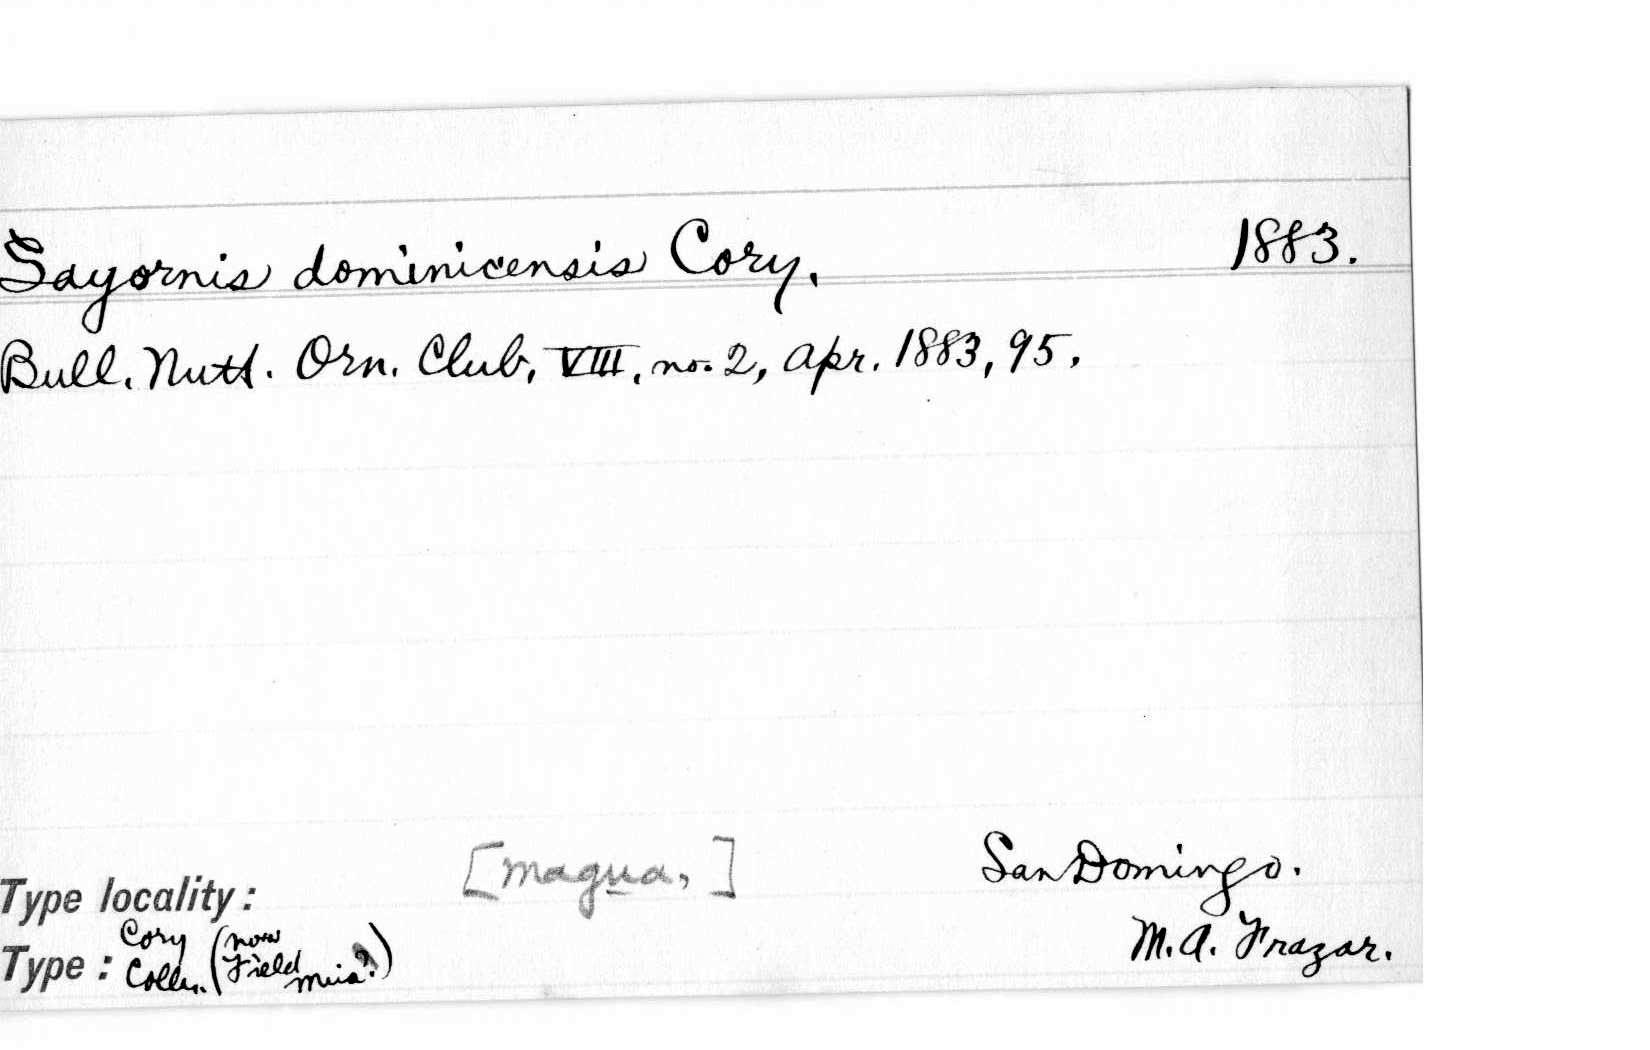 Sayornis dominicensis Cory. 1883.
Bull. Nutt. Orn. Club, VIII, no. 2, Apr. 1883, 95.
Type locality: [Magua,] San Domingo.
Type: Cory Colln. (now Field Mus?) M. A. Frazar.